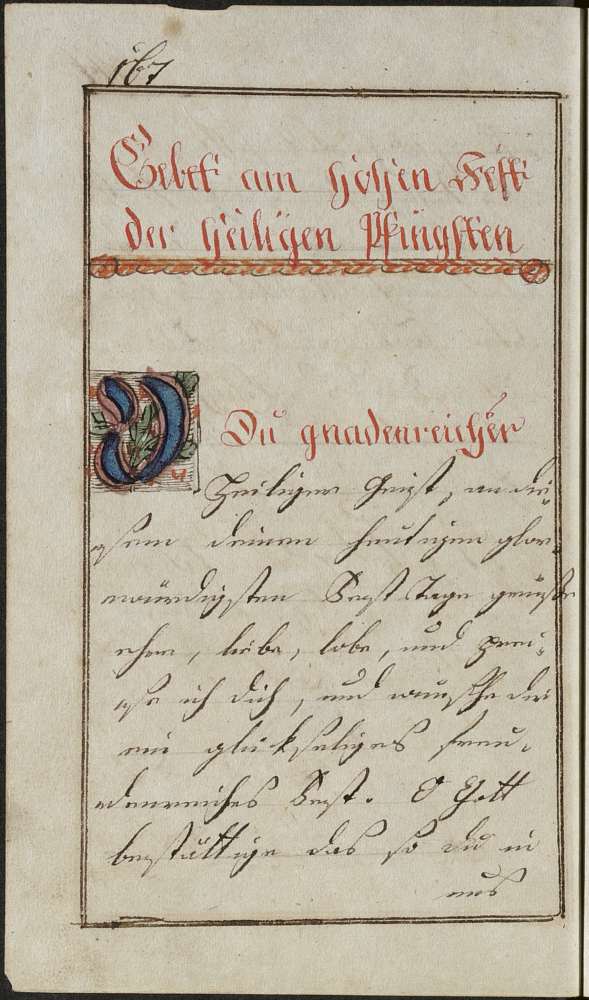 167
Gebet am hohen Fest
der heiligen Pfingsten
O Du gnadenreicher
Heiliger Geist, an die¬
sem deinem heutigen glor¬
würdigsten Fest Tage grüße
ehre, liebe, lobe, und prei¬
se ich dich, und wünsche dir
ein glükseliges freu¬
denreiches Fest. O Gott
bestättige das so du in
uns